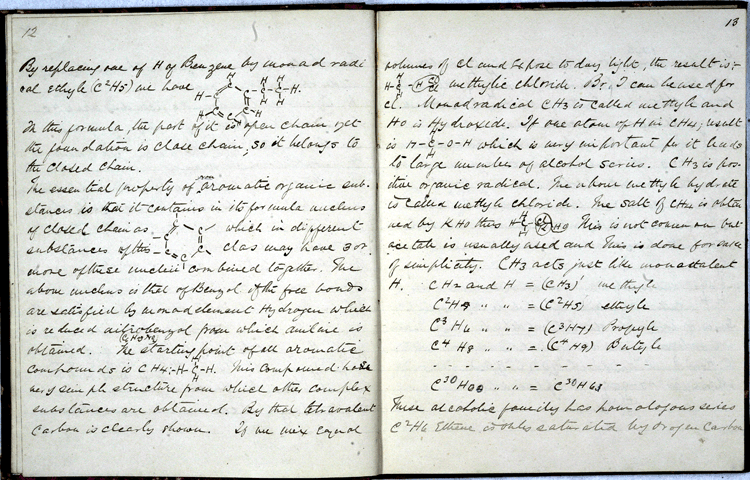 12
By replacing one of H of Benzene by monad radi
cal ethyle (C²H5) we have
In this formula, the part of it is open chain, yet
the foundation is close chain, so it belongs to
the closed chain.
The essential property of aromatic organic sub-
stances is that it contains in its formula nucleus
of closed chain as which in different
substances of this clas may have 3 or
more of these nucleii combined together. The
above nucleus is that of Benzol if the free bonds
are satisfied by monad element Hydrogen which
is reduced nitrobenzol from which aniline is
obtained. The starting point of all aromatic
compounds is CH4. H-C-H. This compound has a
very simple structure from which other complex
substances are obtained. By that tetravalent
Carbon is clearly shown. If we mix equal
13
volumes of Cl and Expose to day light, the result is:-
methylic chloride. Br, I can be used for
Cl. Monad radical CH3 is called methyle and
HO is Hydroxide. If one atom of H in CH4, result
is H-C-O-H which is very important for it leads
to large number of alcohol series. CH3 is pos-
itive organic radical. The above methyle hydrate
is called methyle chloride. The salt of CH4 is obtai
ned by KHO thus HO This is not common but
acetate is usually used and this is done for sake
of simplicity. CH3 acts just like monovalent
H. CH2 and H = (CH3) methyle
C²H4 " " = (C²H5) ethyle
C³H6 " " = (C³H7) Propyle
C⁴H8 " " = (C⁴H9) Butyle
- - - - - - - - -
C³⁰H60 " " = C³⁰H61
These alcoholic family has homologous series
C²H6 Ethene is only saturated hydrogen Carbon